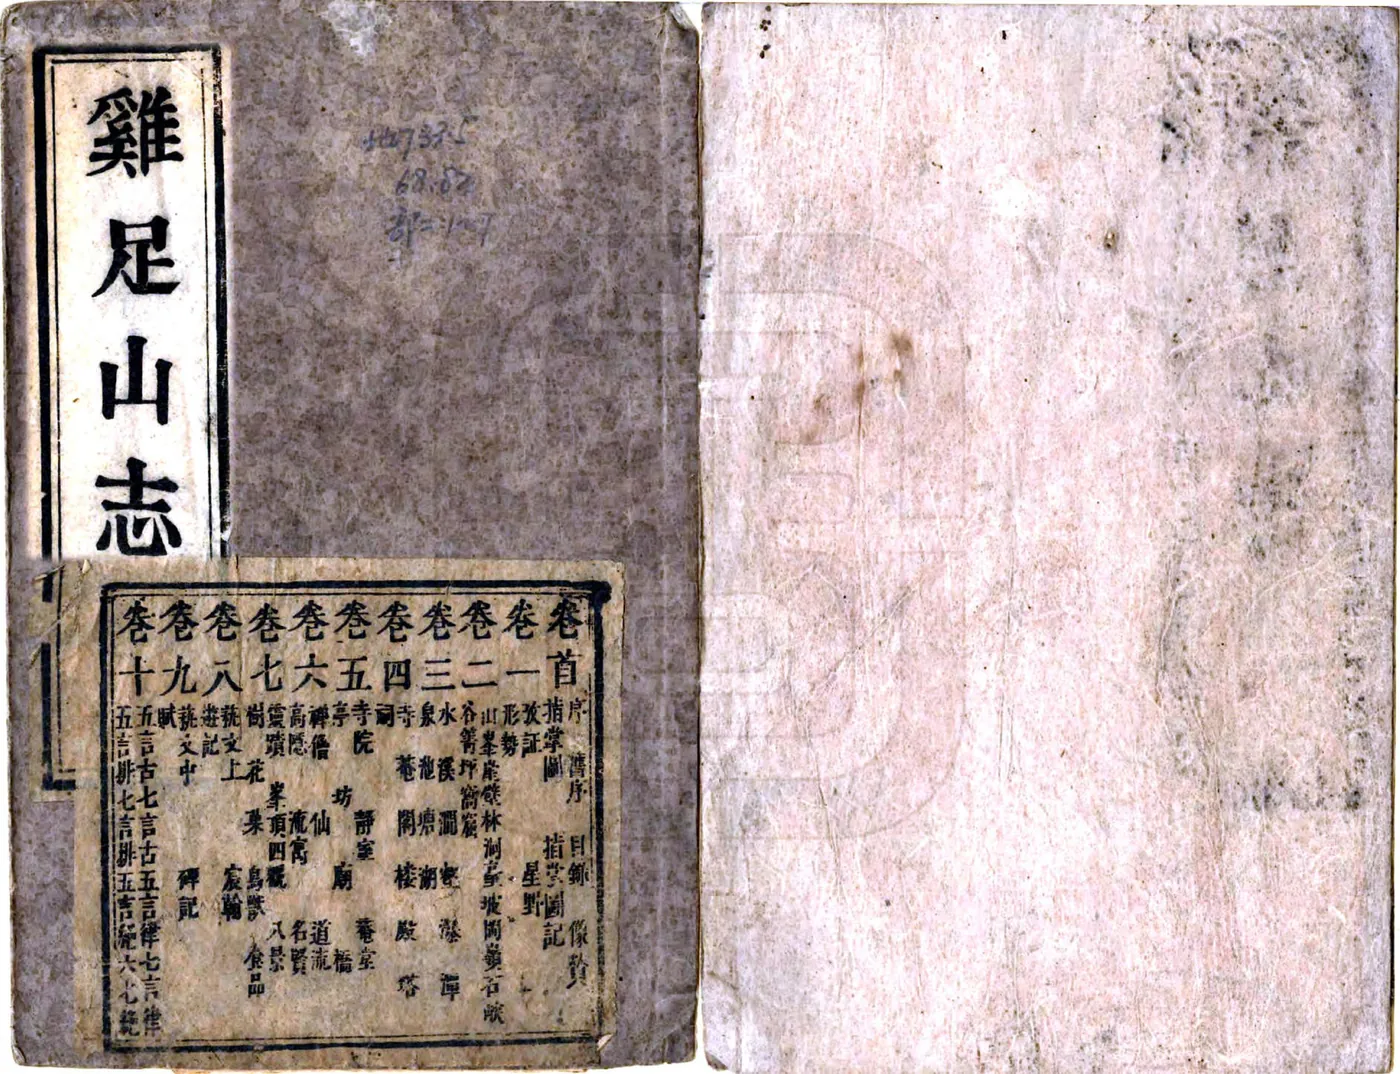 雞足山志
地733.5
68:82
部二:1-7
卷首 序 舊序 目錄 像贊
指掌圖 指掌圖記
卷一 攷証 星野
形勢
卷二 山峯崖壁林洞臺坡岡嶺石峽
谷箐坪窩窟
卷三 水溪澗瀑潭
泉池塘湖
卷四 寺菴閣樓殿塔
祠
卷五 寺院 靜室 菴室
亭坊廟橋
卷六 禪僧 仙 道流
高隱 流寓 名賢
卷七 靈蹟 峯頂四觀 八景
樹花菓鳥獸食品
卷八 藝文上 宸翰
遊記
卷九 藝文中 碑記
賦
卷十 五言古七言古五言律七言律
五言排七言排五言絕六七絕